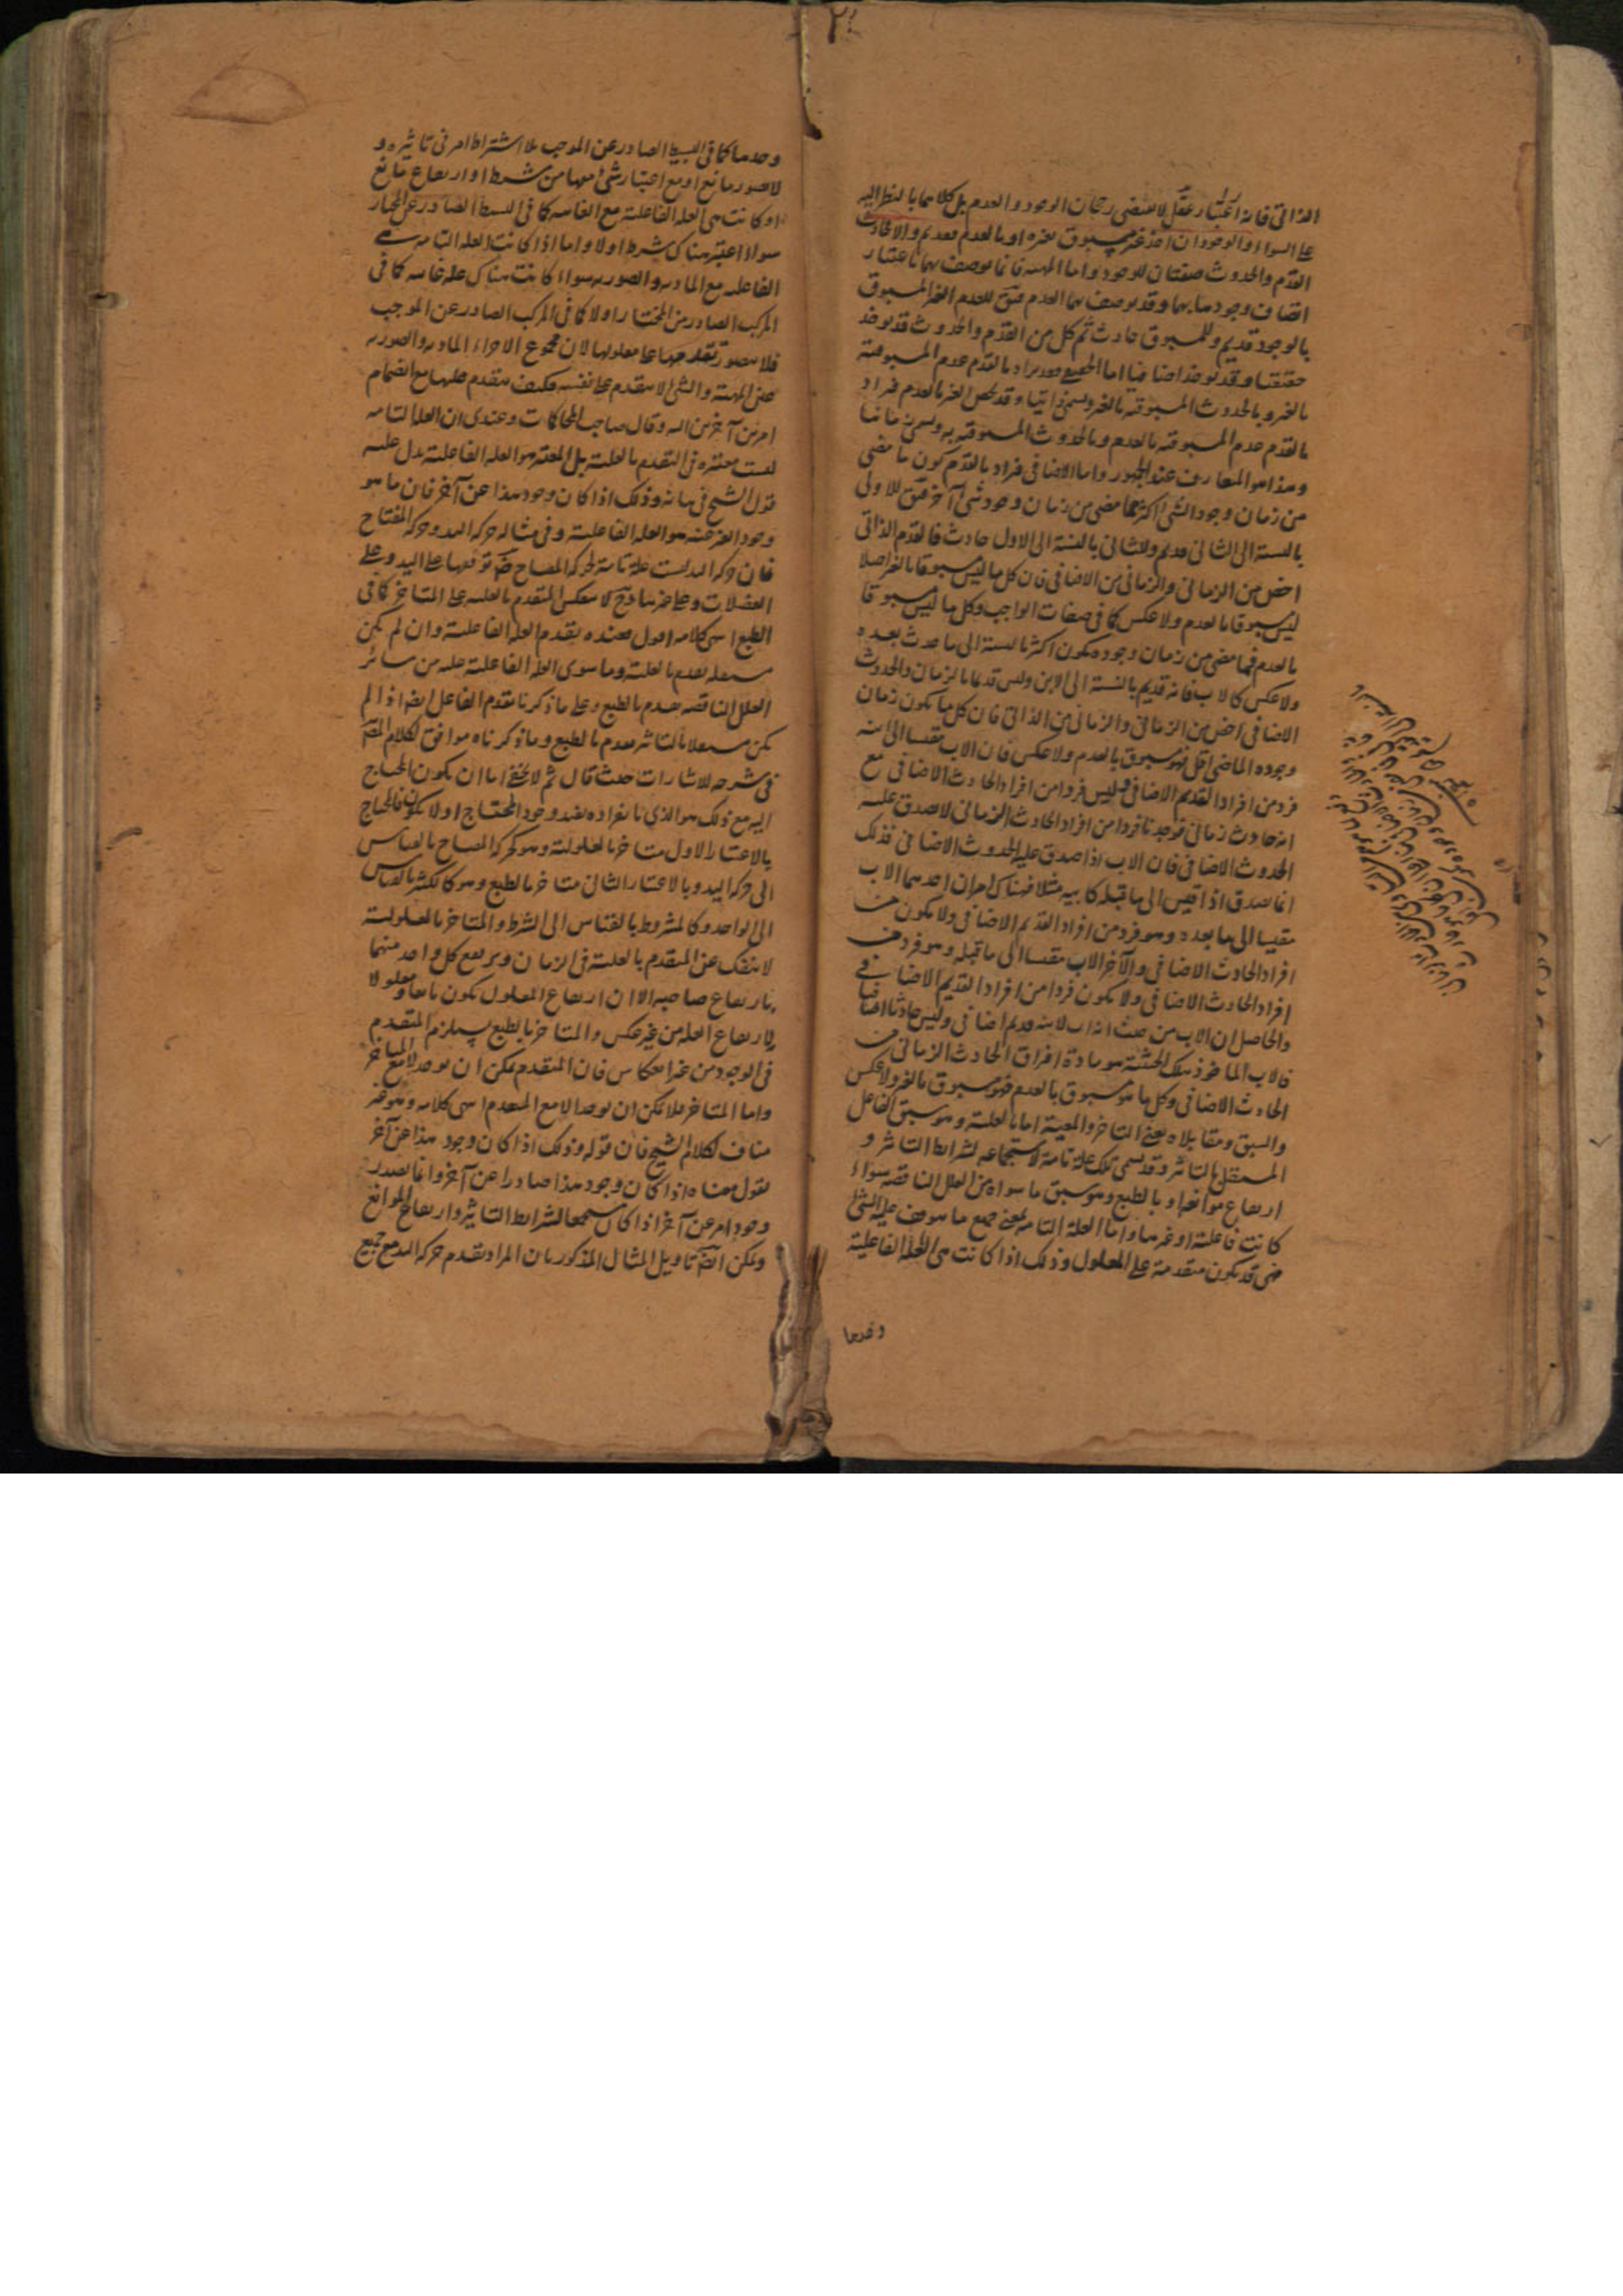 الذاتى فانه اعتبار عقلى لا يقتضى رجحان الوجود والعدم بل كلاهما بالنظر اليه
على السواء والوجود ان اخذ غير مسبوق بغيره او بالعدم فقديم والا فحادث
القدم والحدوث صفتان للوجود واما المهية فانما توصف بهما باعتبار
اتصاف وجودها بهما وقد يوصف بهما العدم فيق للعدم الغير المسبوق
بالوجود قديم وللمسبوق حادث ثم كل من القدم والحدوث قد يوخذ
حقيقيا وقد يوخذ اضافيا اما الحقيقى فقد يراد بالقدم عدم المسبوقية
بالغير وبالحدوث المسبوقية بالغير ويسمى ذاتيا وقد يخص الغير بالعدم فيراد
بالقدم عدم المسبوقية بالعدم وبالحدوث المسبوقية به ويسمى زمانيا
وهذا هو المتعارف عند الجمهور واما الاضافى فيراد بالقدم كون ما مضى
من زمان وجود الشى اكثر مما مضى من زمان وجود شى آخر فيق للاول
بالنسبة الى الثانى قديم وللثانى بالنسبة الى الاول حادث فالقدم الذاتى
اخص من الزمانى والزمانى من الاضافى فان كل ما ليس مسبوقا بالغير اصلا
ليس مسبوقا بالعدم ولا عكس كما فى صفات الواجب وكل ما ليس مسبوقا
بالعدم فما مضى من زمان وجوده يكون اكثر بالنسبة الى ما حدث بعده
ولا عكس كالاب فانه قديم بالنسبة الى الابن وليس قديما بالزمان والحدوث
الاضافى اخص من الزمانى والزمانى من الذاتى فان كل ما يكون زمان
وجوده الماضى اقل فهو مسبوق بالعدم ولا عكس فان الاب مقيسا الى ابنه
فرد من افراد القديم الاضافى وليس فردا من افراد الحادث الاضافى مع
انه حادث زمانى فوجدنا فردا من افراد الحادث الزمانى لا صدق عليه
الحدوث الاضافى فان الاب اذا صدق عليه الحدوث الاضافى فذلك
انما يصدق اذا قيس الى ما قبله كابيه مثلا فهناك امران احدهما الاب
مقيسا الى ما بعده وهو فرد من افراد القديم الاضافى ولا يكون من
افراد الحادث الاضافى والآخر الاب مقيسا الى ما قبله وهو فرد من
افراد الحادث الاضافى ولا يكون فردا من افراد القديم الاضافى
والحاصل ان الاب من حيث انه اب لابنه قديم اضافى وليس حادثا اضافيا
فالاب الماخوذ بتلك الحيثية هو مادة افتراق الحادث الزمانى من
الحادث الاضافى وكل ما هو مسبوق بالعدم فهو مسبوق بالغير ولا عكس
والسبق ومقابلاه يعنى التاخر والمعية اما بالعلية وهو سبق الفاعل
المستقل بالتاثير وقد يسمى تلك علة تامة لاستجماعه لشرايط التاثير و
ارتفاع موانعه او بالطبع وهو سبق ما سواه من العلل الناقصة سواء
كانت فاعلية او غيرها واما العلة التامة بمعنى جميع ما يتوقف عليه الشى
فهى قد يكون متقدمة على المعلول وذلك اذا كانت هى العلة الفاعلية
وحدها
وحدها كما فى البسيط الصادر عن الموجب بلا اشتراط امر فى تاثيره و
لا تصور مانع او مع اعتبار شى معها من شرط او ارتفاع مانع
او كانت هى العلة الفاعلية مع الغاية كما فى البسيط الصادر عن المختار
سواء اعتبر هناك شرط اولا واما اذا كانت العلة التامة هى
الفاعلية مع المادية والصورية سواء كانت هناك علة غائية كما فى
المركب الصادر من المختار اولا كما فى المركب الصادر عن الموجب
فلا يتصور تقدمها على معلولها لان مجموع الاجزاء المادية والصورية
عين المهية والشى لا يتقدم على نفسه فكيف يتقدم عليها مع انضمام
امرين آخرين اليه وقال صاحب المحاكمات وعندى ان العلة التامة
ليست معتبرة فى التقدم بالعلية بل المعتبر هو العلة الفاعلية يدل عليه
قول الشيخ فى بيانه وذلك اذا كان وجود هذا عن آخر فان ما هو
وجود الغير عنه هو العلة الفاعلية وفى مثاله حركة اليد وحركة المفتاح
فان حركة اليد ليست علة تامة لحركة المفتاح ضرورة توقفها على اليد وعلى
العضلات وعلى غيرها وح لا ينعكس المتقدم بالعلية على المتاخر كما فى
الطبع انتهى كلامه اقول فعنده تقدم العلة الفاعلية وان لم يكن
مستقلة تقدم بالعلية وما سوى العلة الفاعلية عنده من سائر
العلل الناقصة تقدم بالطبع وعلى ما ذكرنا تقدم الفاعل ايضا اذا لم
يكن مستقلا بالتاثير تقدم بالطبع وما ذكرناه موافق لكلام المصنف
فى شرحه للاشارات حيث قال ثم لا يخلو اما ان يكون المحتاج
اليه مع ذلك هو الذى بانفراده يفيد وجود المحتاج او لا يكون فالمحتاج
بالاعتبار الاول متاخر بالمعلولية وهو كحركة المفتاح بالقياس
الى حركة اليد وبالاعتبار الثانى متاخر بالطبع وهو كالكثير بالقياس
الى الواحد وكالمشروط بالقياس الى الشرط والمتاخر بالمعلولية
لا ينفك عن المتقدم بالعلية فى الزمان ويرتفع كل واحد منهما
بارتفاع صاحبه الا ان ارتفاع المعلول يكون تابعا ومعلولا
لارتفاع العلة من غير عكس والمتاخر بالطبع يستلزم المتقدم
فى الوجود من غير انعكاس فان المتقدم يمكن ان يوجد لا مع المتاخر
واما المتاخر فلا يمكن ان يوجد الا مع المتقدم انتهى كلامه وهو غير
مناف لكلام الشيخ فان قوله وذلك اذا كان وجود هذا عن آخر
نقول معناه اذا كان وجود هذا صادرا عن آخر وانما يصدر
وجود امر عن آخر اذا كان مستجمعا لشرايط التاثير وارتفاع الموانع
ويمكن ايضا تاويل المثال المذكور بان المراد تقدم حركة اليد مع جميع